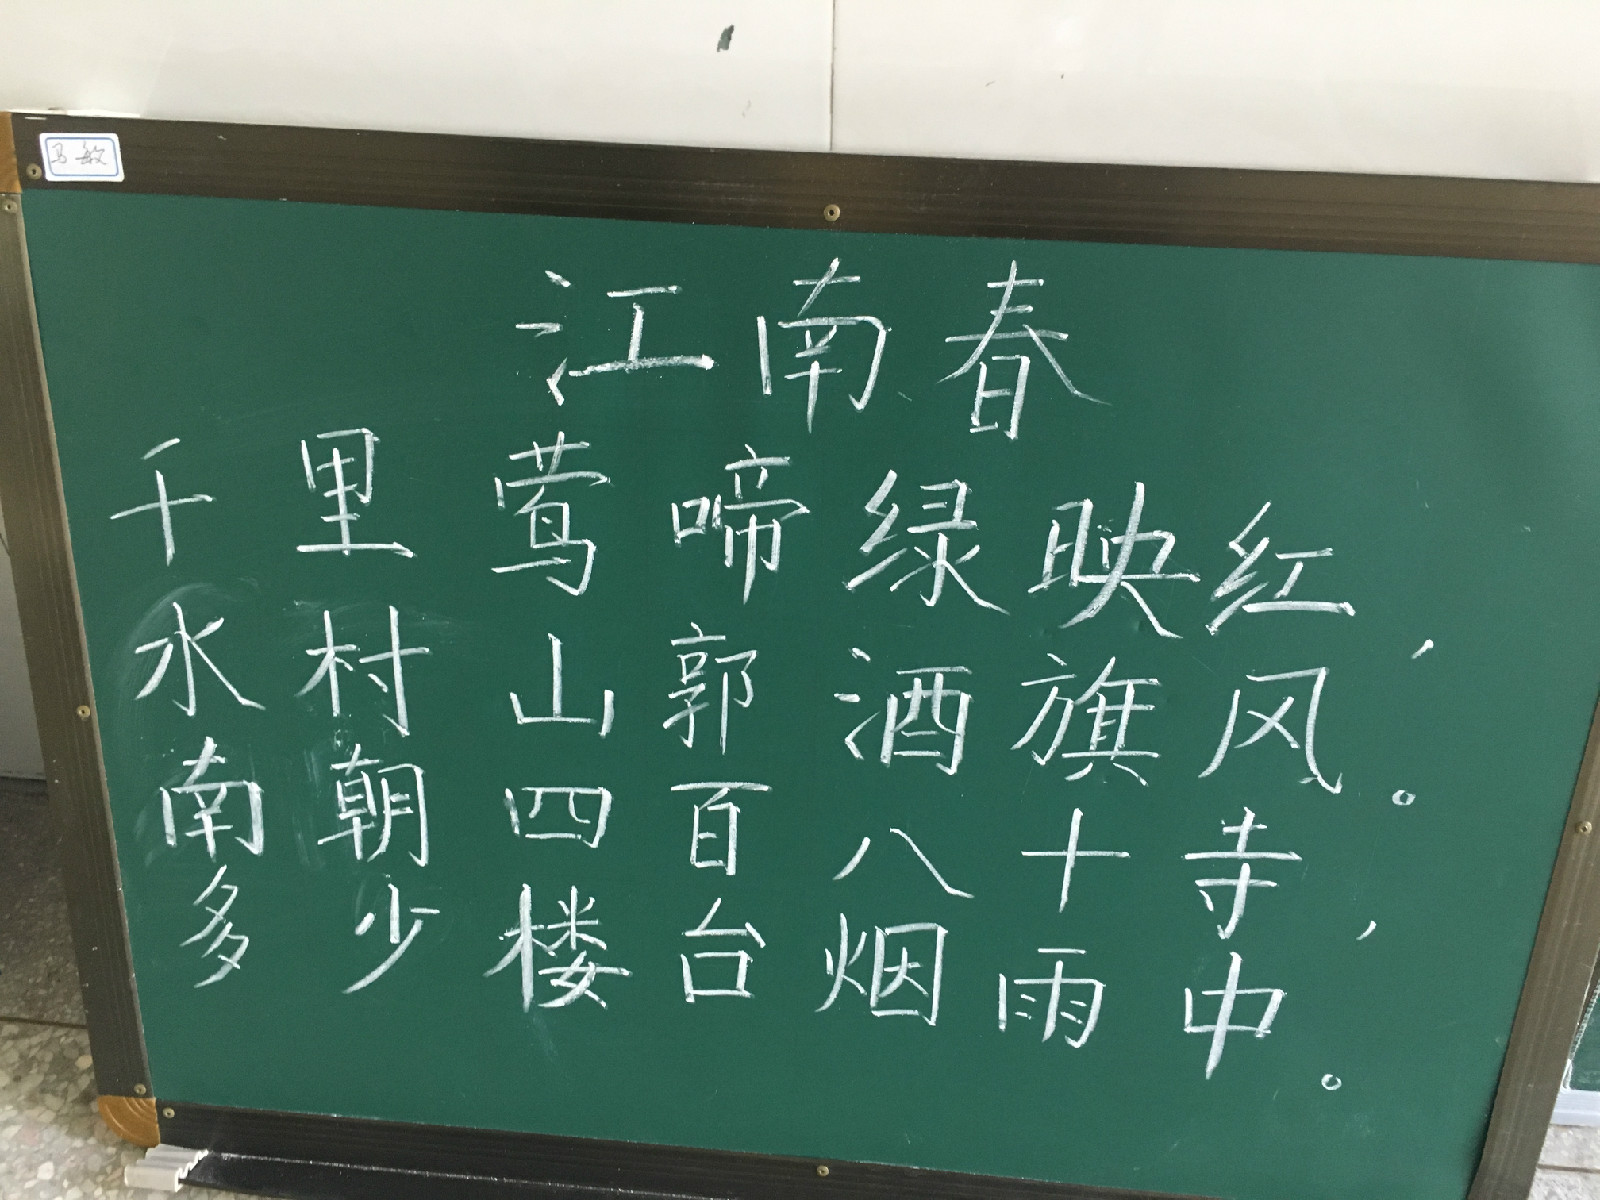 马敏
江南春
千里莺啼绿映红，
水村山郭酒旗风。
南朝四百八十寺，
多少楼台烟雨中。